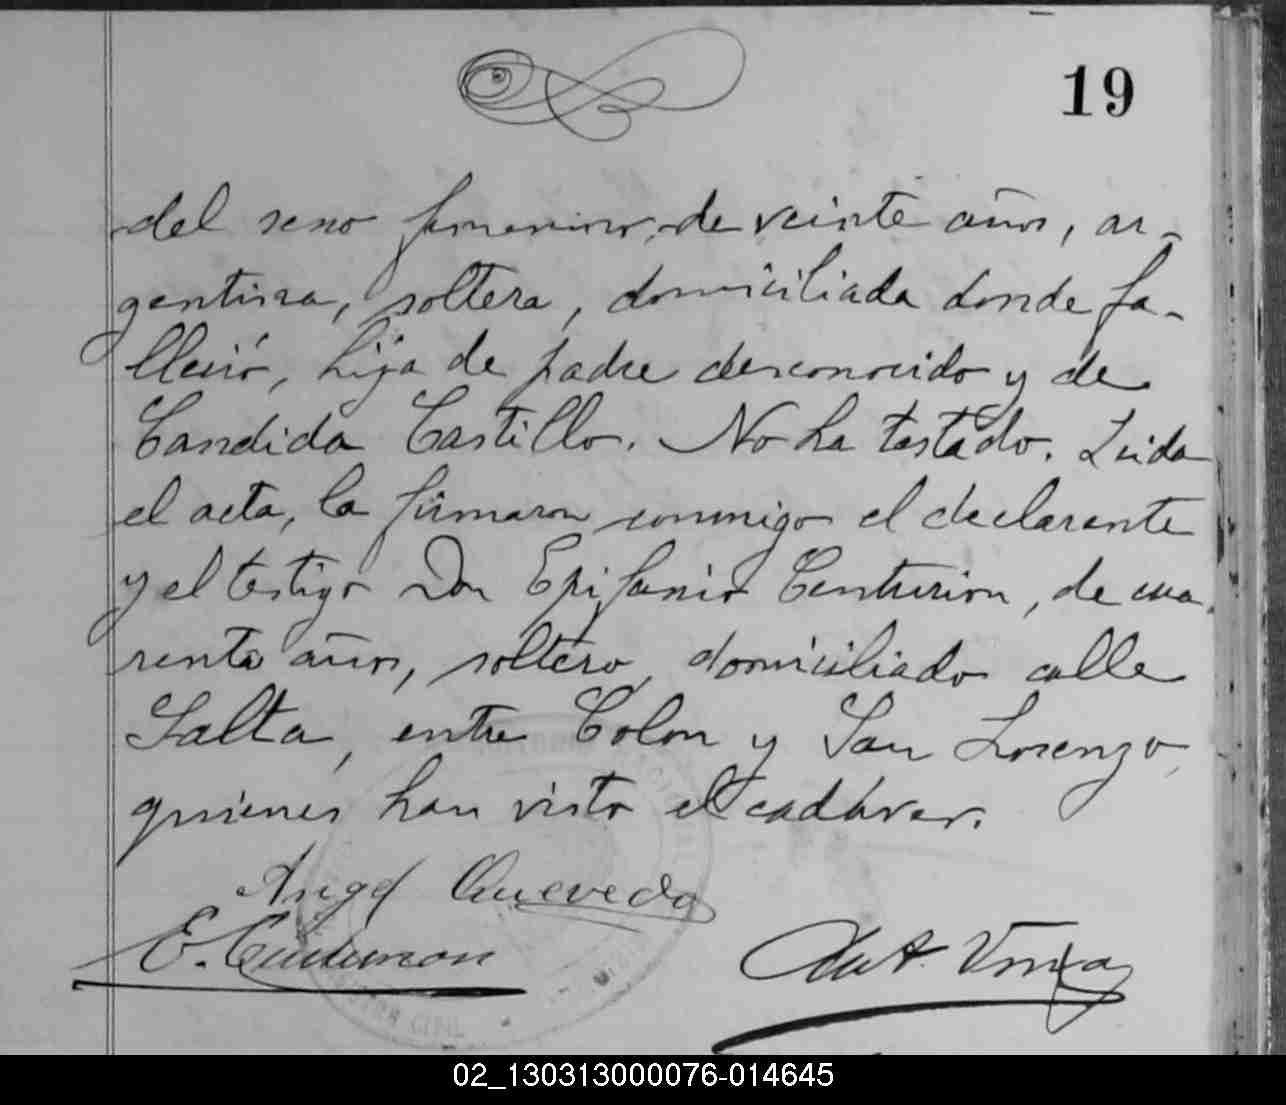 19
del sexo femenino, de veinte años, ar-
gentina, soltera, domiciliada donde fa-
lleció, hija de padre desconocido y de
Candida Castillo. No ha testado. Leida
el acta, la firmaron conmigo el declarante
y el testigo Don Epifanio Centurion, de cua-
renta años, soltero, domiciliado calle
Salta, entre Colon y San Lorenzo,
quienes han visto el cadáver.
Angel Quevedo
E. Centurion
CIVIL
02_130313000076-014645